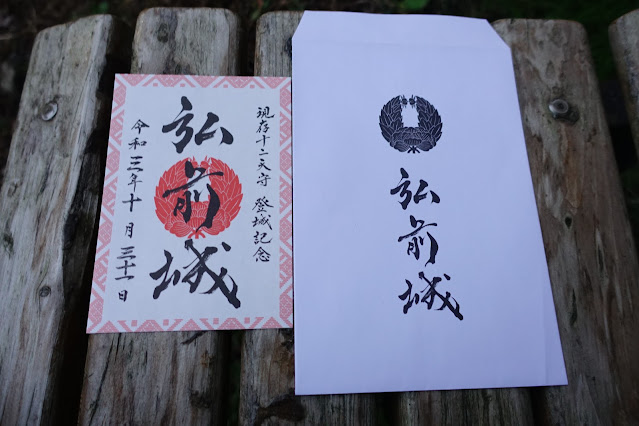 現存十二天守 登城記念
弘前城
令和三年十月三十一日
弘前城